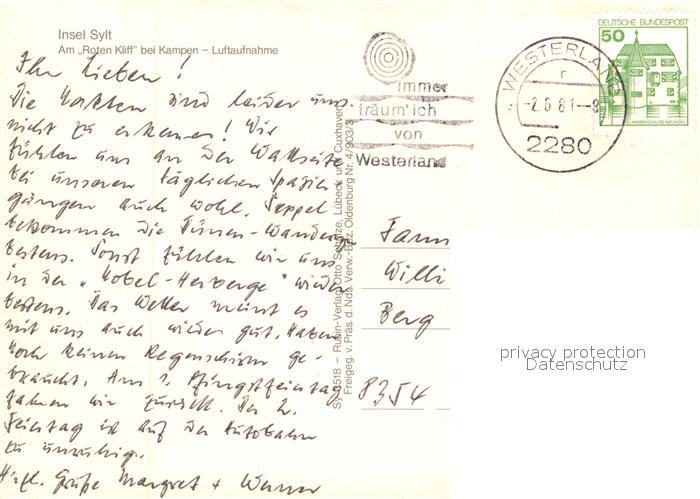 Insel Sylt
Am „Roten Kliff" bei Kampen – Luftaufnahme
Ihr Lieben!
Die Karten sind leider uns.
nicht zu erkennen! Wir
fühlen uns an der Waterkante
bei unseren täglichen Spazier-
gängen auch wohl. Seppel
bekommen die Dünen-Wanderung
bestens. Sonst fühlen wir uns
in der „Nobel-Herberge" wieder
bestens. Das Wetter meint es
mit uns auch wieder gut. Haben
noch keinen Regenschirm ge-
braucht. Am 1. Pfingstfeiertag
fahren wir zurück. Der 2.
Feiertag ist auf der Autobahn
zu unruhig.
Herzl. Grüße Margret + Werner
Sy 2518 – Rubin-Verlag Otto Schulze, Lübeck und Cuxhaven
Freigeg. v. Präs. d. Nds. Verw.-Bez. Oldenburg Nr. 4/903/3
immer
träum' ich
von
Westerland
WESTERLAND
r
-2.6.81--9
2280
DEUTSCHE BUNDESPOST
50
WASSERSCHLOSS INZLINGEN
Fam
Willi
Berg
8354
privacy protection
Datenschutz